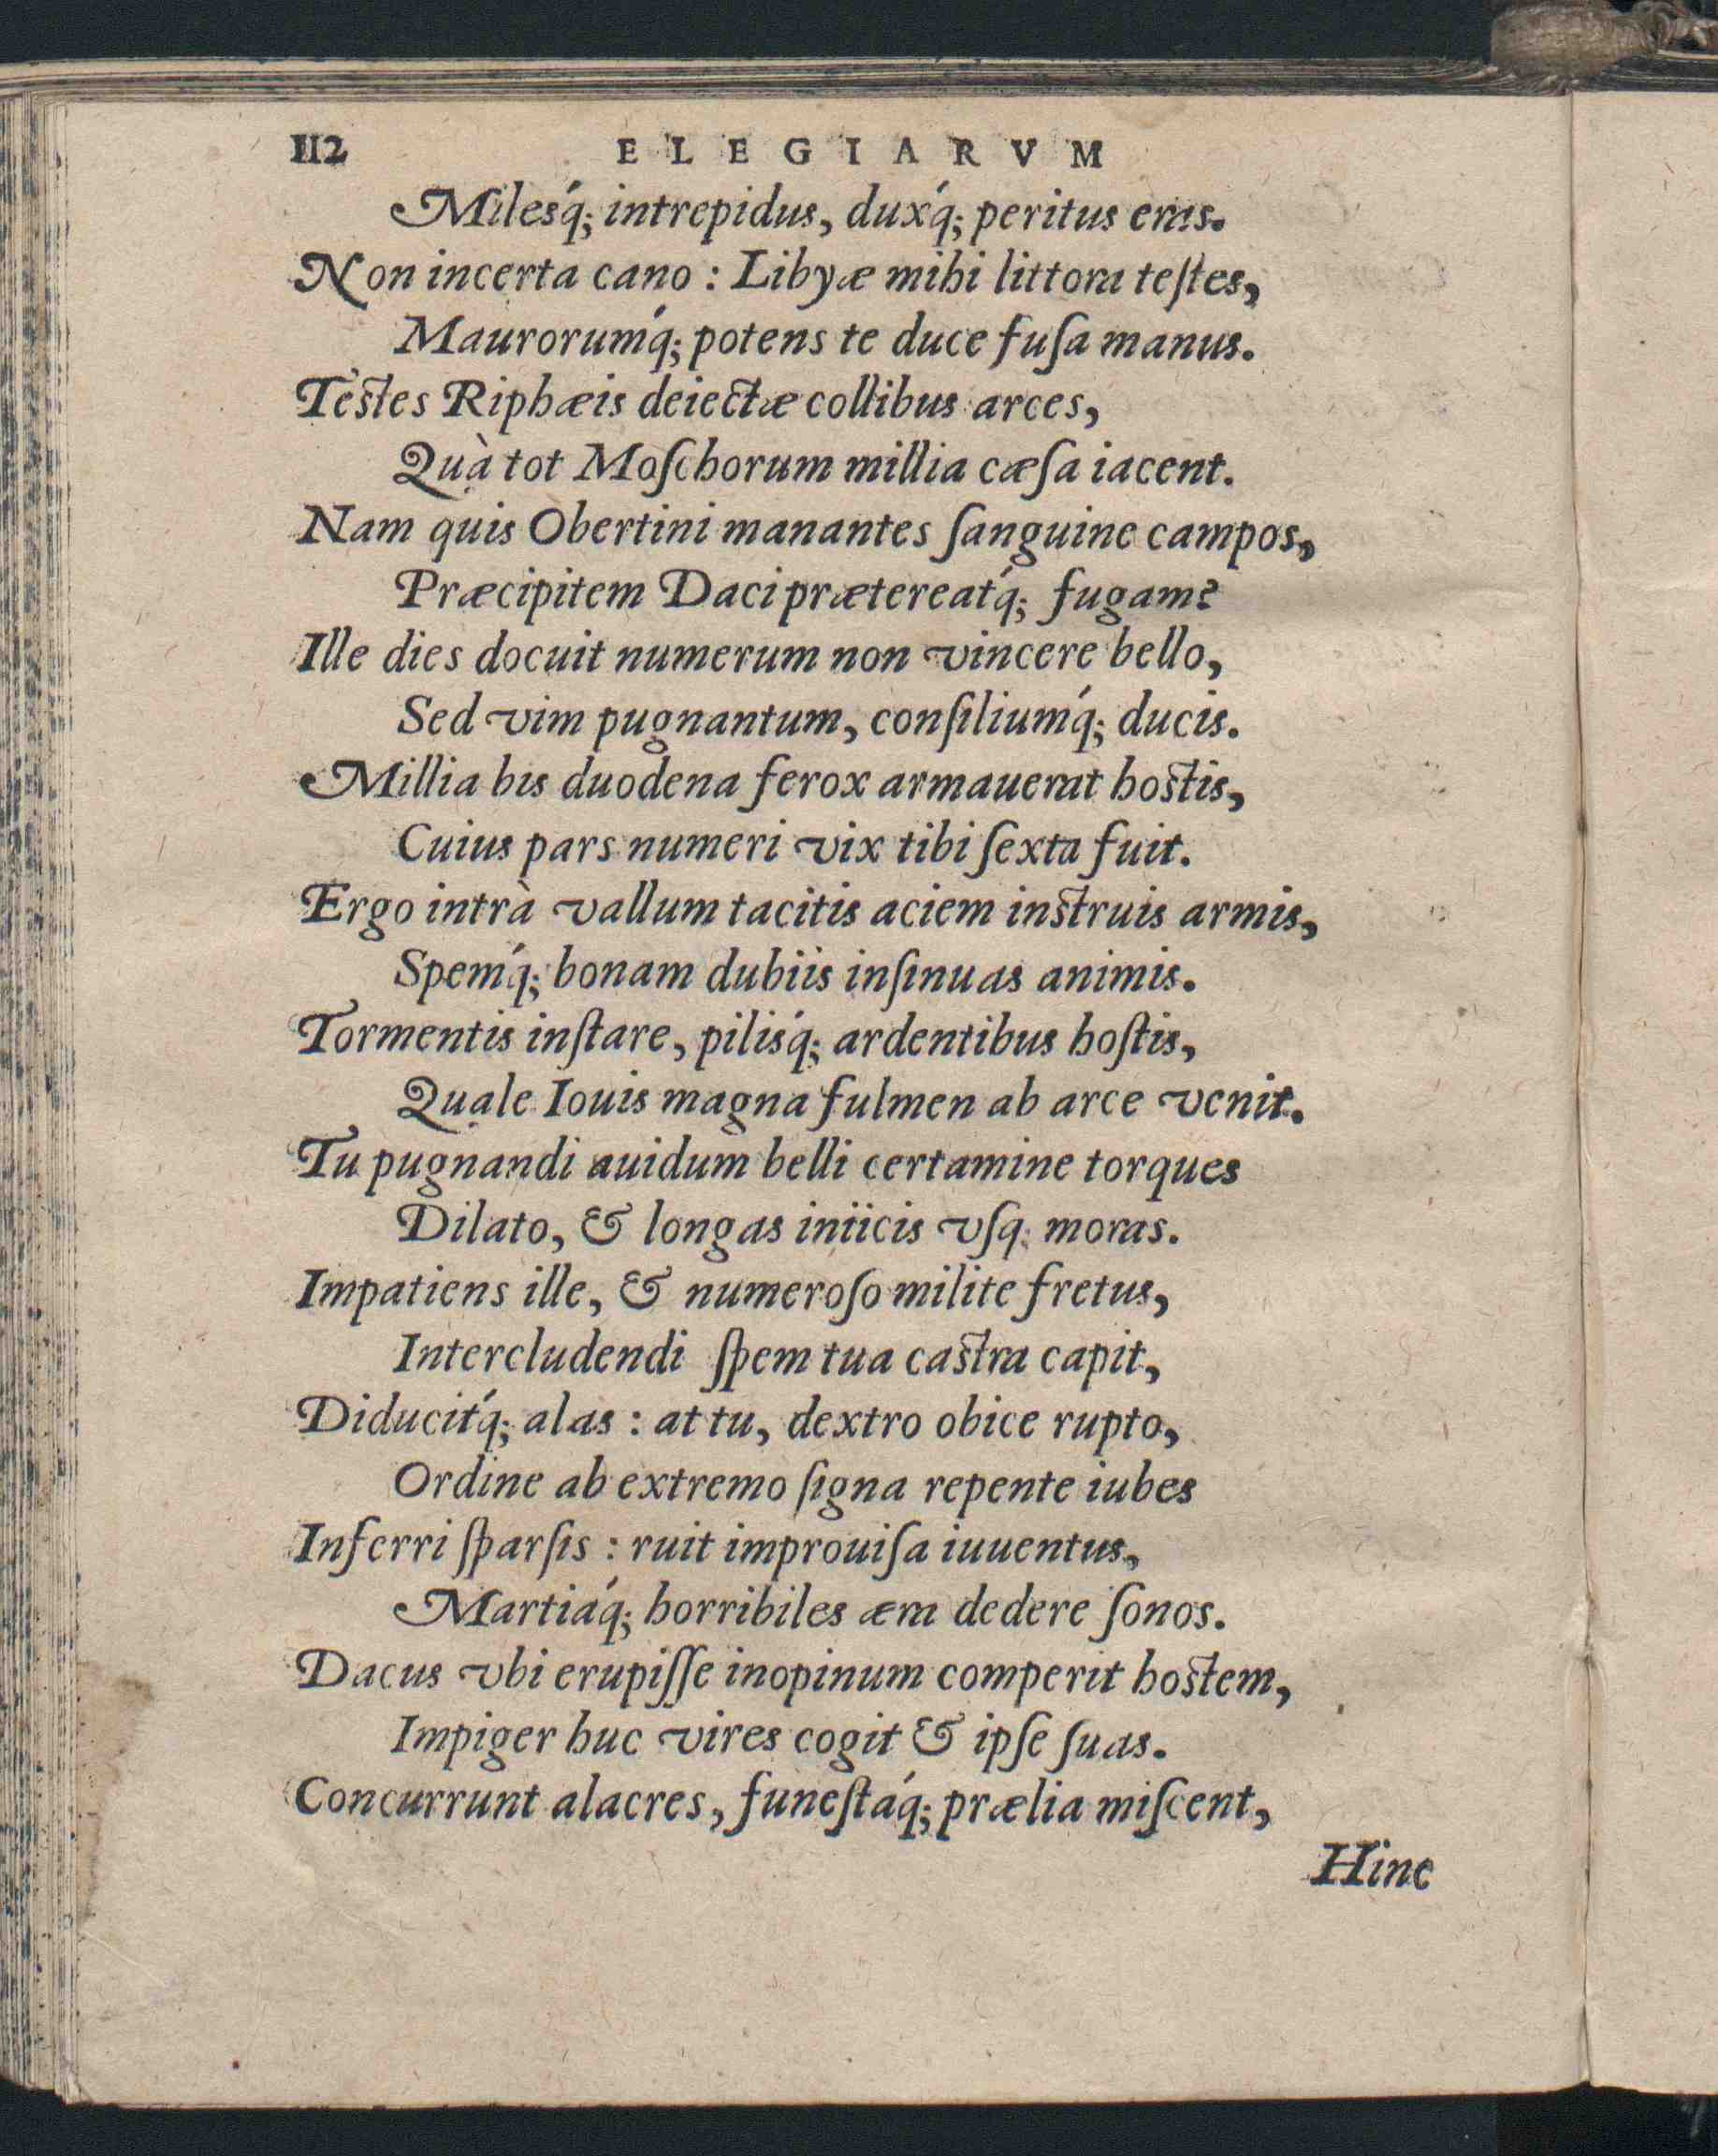 112 ELEGIARVM
Milesq́; intrepidus, duxq́; peritus eras.
Non incerta cano : Libyæ mihi littora teſtes,
Maurorumq́; potens te duce fuſa manus.
Teſtes Riphæis deiectæ collibus arces,
Quà tot Moſchorum millia cæſa iacent.
Nam quis Obertini manantes ſanguine campos,
Præcipitem Daci prætereatq́; fugam?
Ille dies docuit numerum non vincere bello,
Sed vim pugnantum, conſiliumq́; ducis.
Millia bis duodena ferox armauerat hoſtis,
Cuius pars numeri vix tibi ſexta fuit.
Ergo intrà vallum tacitis aciem inſtruis armis,
Spemq́; bonam dubiis inſinuas animis.
Tormentis inſtare, pilisq́; ardentibus hoſtis,
Quale Iouis magna fulmen ab arce venit.
Tu pugnandi auidum belli certamine torques
Dilato, & longas iniicis vſq; moras.
Impatiens ille, & numeroſo milite fretus,
Intercludendi ſpem tua caſtra capit,
Diducitq́; alas : at tu, dextro obice rupto,
Ordine ab extremo ſigna repente iubes
Inferri ſparſis : ruit improuiſa iuuentus,
Martiaq́; horribiles æra dedere ſonos.
Dacus vbi erupiſſe inopinum comperit hoſtem,
Impiger huc vires cogit & ipſe ſuas.
Concurrunt alacres, funeſtaq́; prælia miſcent,
Hinc